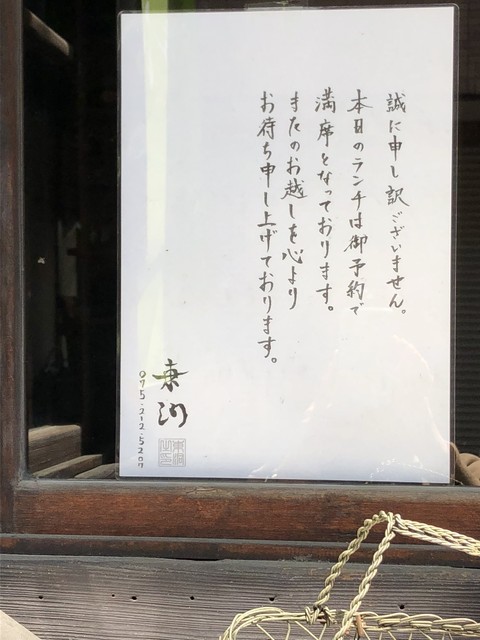 誠に申し訳ございません。
本日のランチは御予約で
満席となっております。
またのお越しを心より
お待ち申し上げております。
075-212-5207